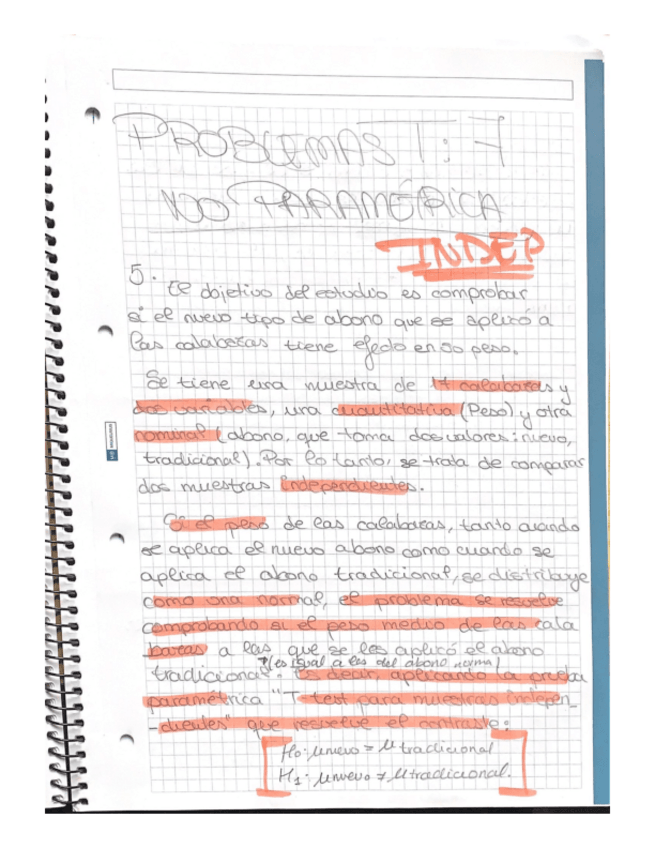 PROBLEMAS T: 7
NO PARAMÉRICA
INDEP
5. El objetivo del estudio es comprobar
si el nuevo tipo de abono que se aplicó a
las calabazas tiene efecto en su peso.
Se tiene una muestra de 17 calabazas y
dos variables, una cuantitativa (Peso) y otra
nominal (abono, que toma dos valores: nuevo,
tradicional). Por lo tanto, se trata de comparar
dos muestras independientes.
Si el peso de las calabazas, tanto cuando
se aplica el nuevo abono como cuando se
aplica el abono tradicional, se distribuye
como una normal, el problema se resuelve
comprobando si el peso medio de las cala
bazas a las que se les aplicó el abono
(es igual a las del abono
tradicional. Es decir, aplicando la prueba
paramétrica "T-test para muestras indepen-
-dientes" que resuelve el contraste:
H0: μnuevo = μ tradicional
H1: μnuevo ≠ μ tradicional.